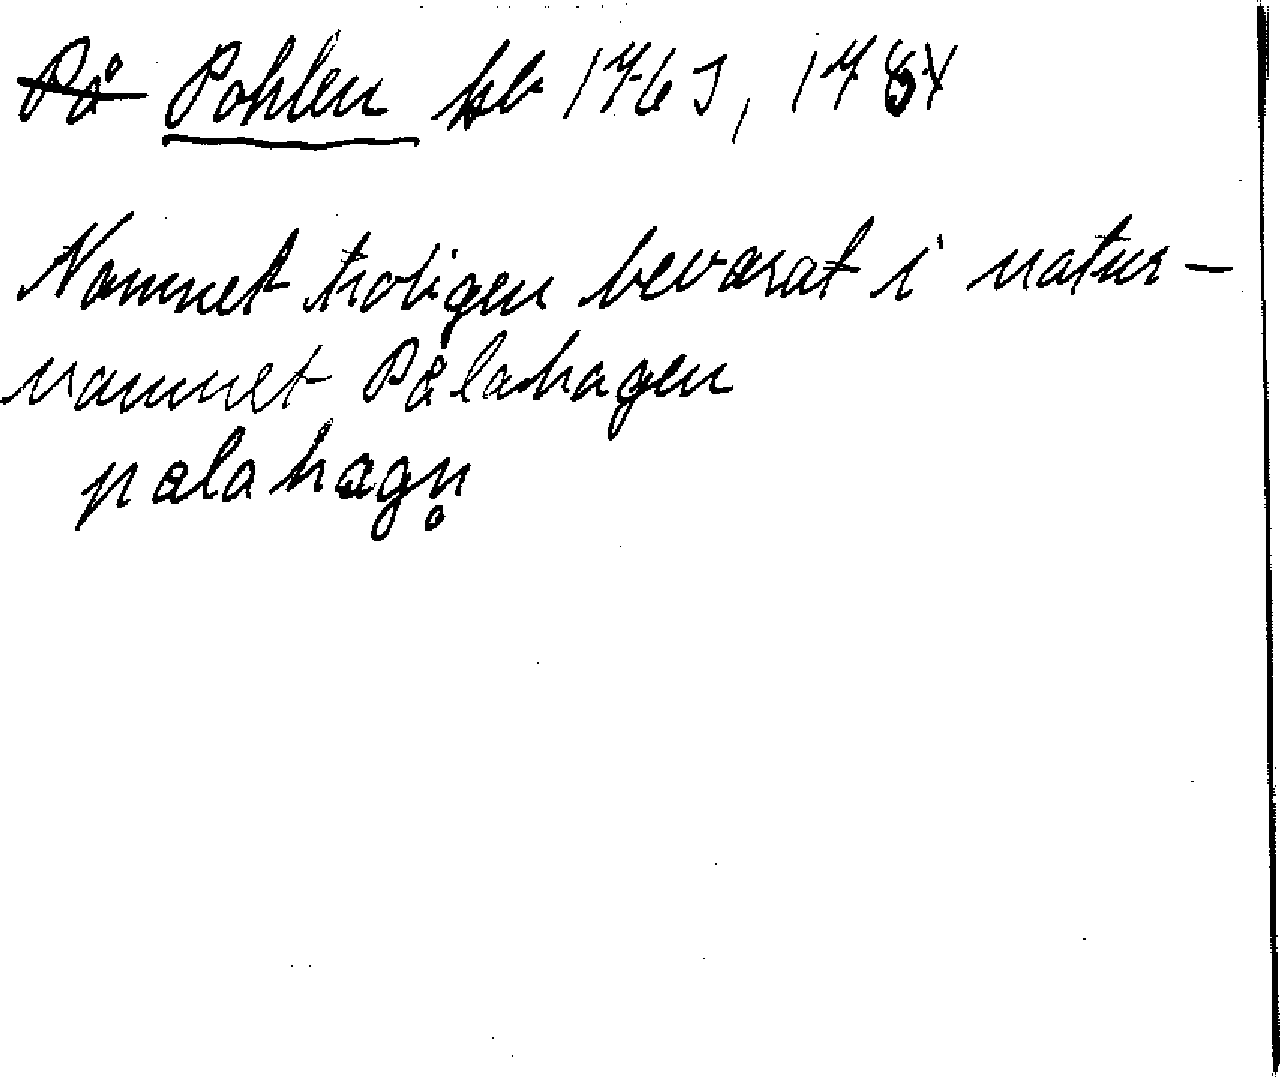 På Pohlen kb 1765, 1784
Namnet troligen bevarat i natur-
namnet Pålahagen
pålahagn̥